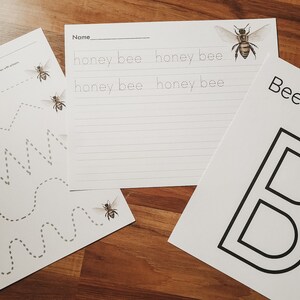 Name
honey bee honey bee
honey bee honey bee
Bee
B